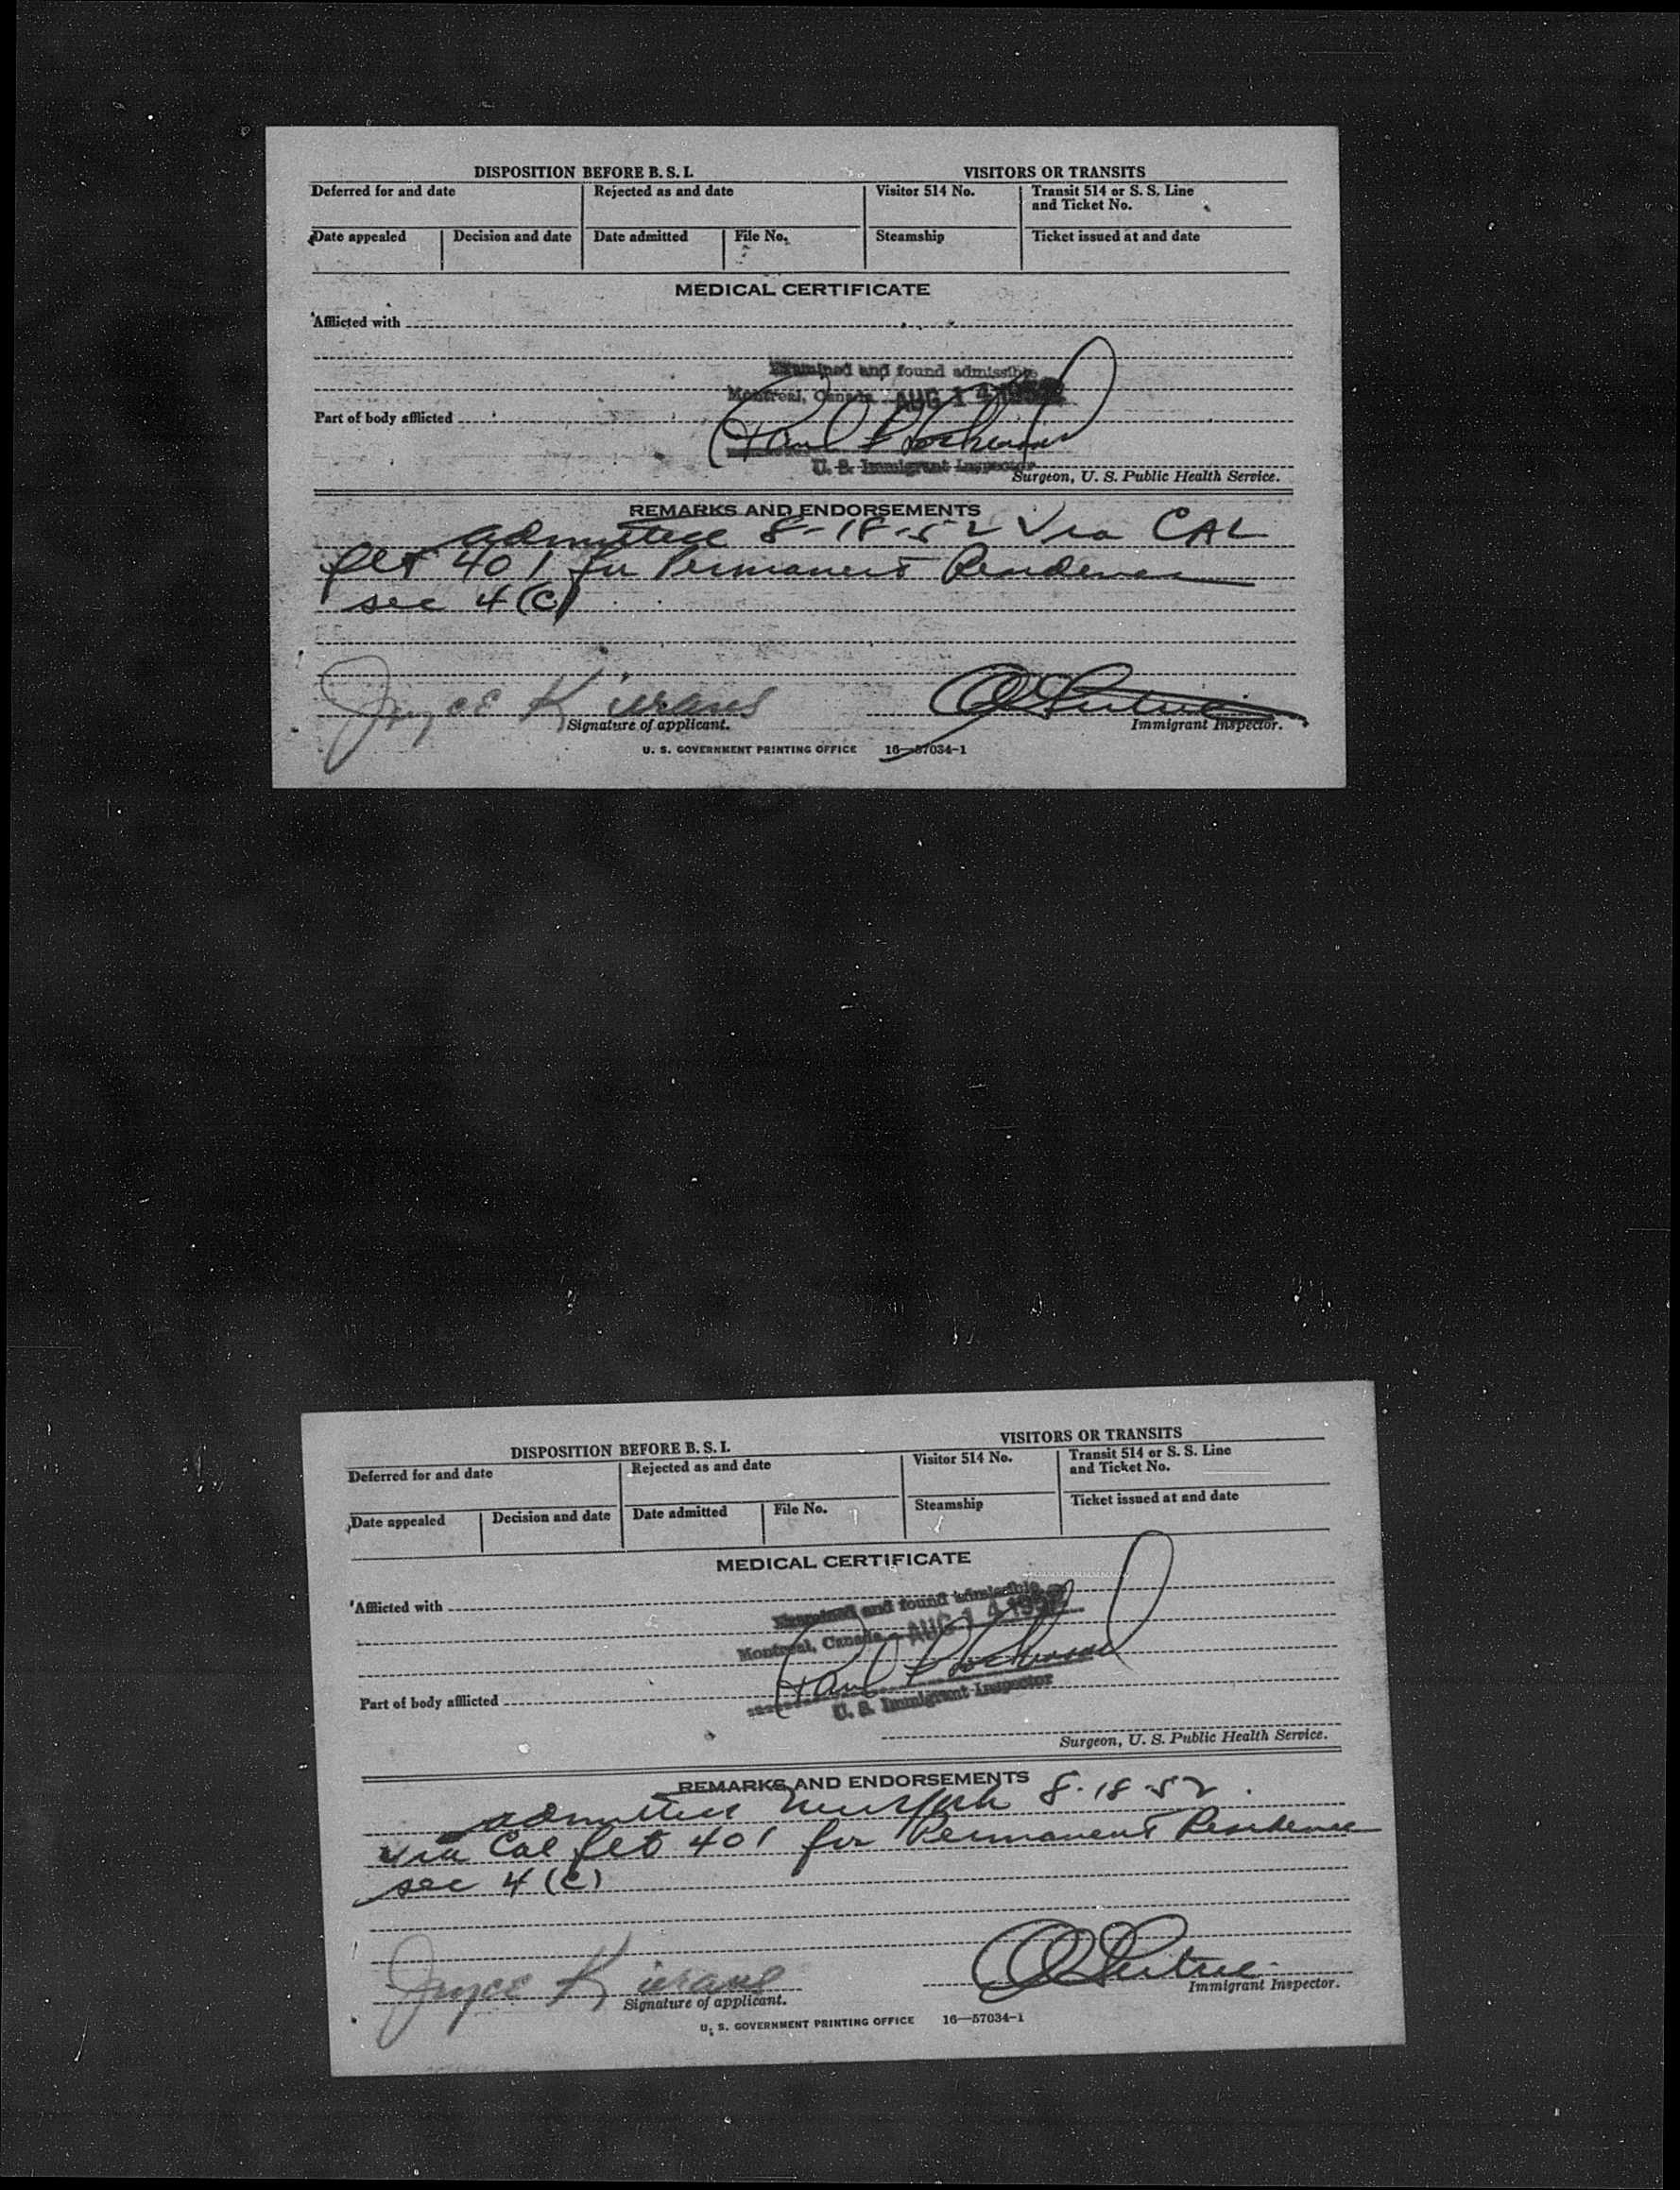 DISPOSITION BEFORE B. S. I.
VISITORS OR TRANSITS
Deferred for and date
Rejected as and date
Visitor 514 No.
Transit 514 or S. S. Line
and Ticket No.
Date appealed
Decision and date
Date admitted
File No.
Steamship
Ticket issued at and date
MEDICAL CERTIFICATE
Afflicted with
Examined and found admissible
Montreal, Canada AUG 14 1952
Part of body afflicted
Paul
U. S. Immigrant Inspector
Surgeon, U. S. Public Health Service.
REMARKS AND ENDORSEMENTS
admitted 8-18-52 Via CAL
flt 401 for Permanent Residence
sec 4(C)
Joyce Kierans
Signature of applicant.
Immigrant Inspector.
U. S. GOVERNMENT PRINTING OFFICE 16—57034-1
DISPOSITION BEFORE B. S. I.
VISITORS OR TRANSITS
Deferred for and date
Rejected as and date
Visitor 514 No.
Transit 514 or S. S. Line
and Ticket No.
Date appealed
Decision and date
Date admitted
File No.
Steamship
Ticket issued at and date
MEDICAL CERTIFICATE
Afflicted with
Examined and found admissible
Montreal, Canada AUG 14 1952
Paul
Part of body afflicted
U. S. Immigrant Inspector
Surgeon, U. S. Public Health Service.
REMARKS AND ENDORSEMENTS
admitted New York 8-18-52
via Cal flt 401 for Permanent Residence
sec 4(C)
Joyce Kierans
Signature of applicant.
Immigrant Inspector.
U. S. GOVERNMENT PRINTING OFFICE 16—57034-1